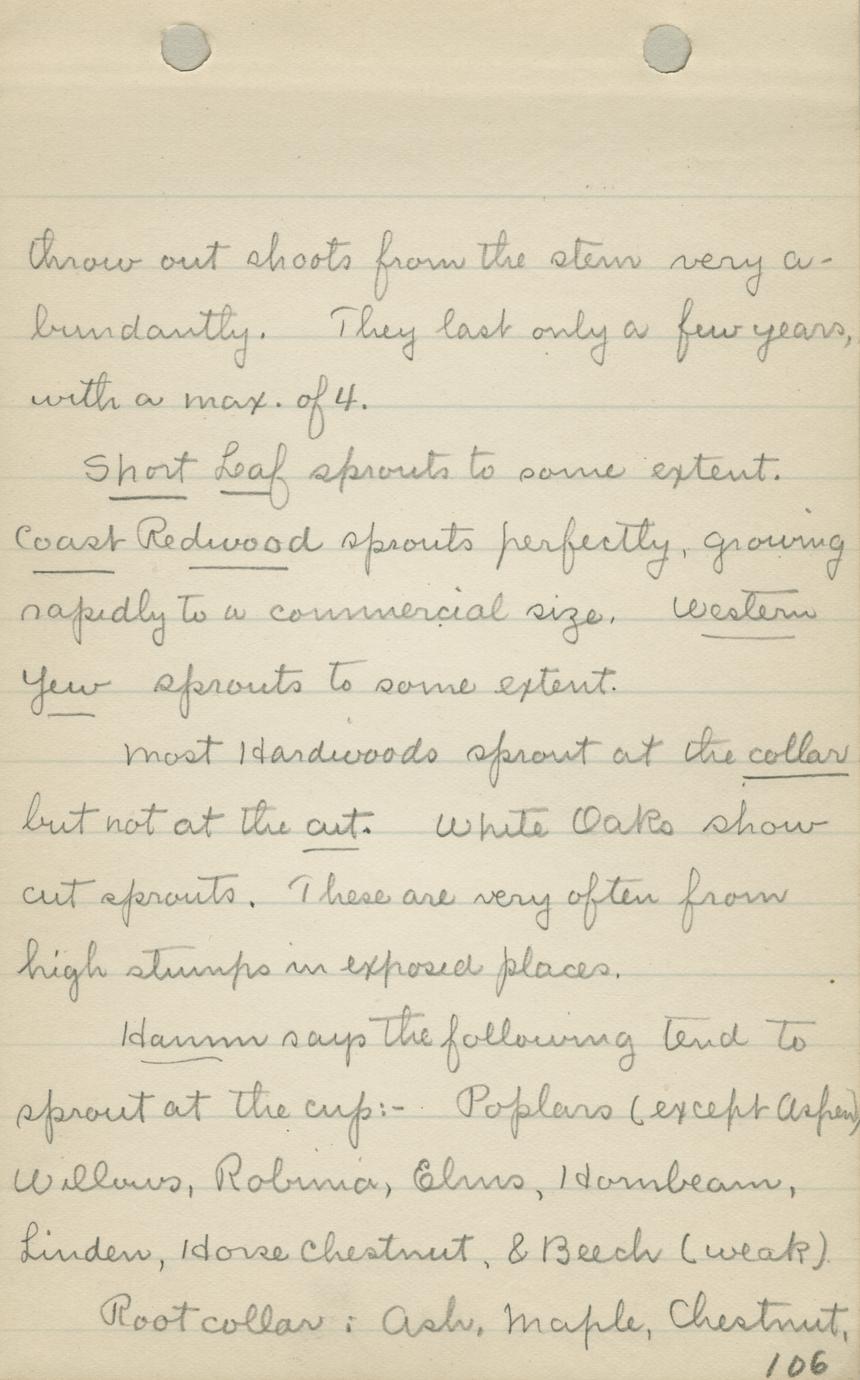 throw out shoots from the stem very a-
bundantly. They last only a few years,
with a max. of 4.
Short Leaf sprouts to some extent.
Coast Redwood sprouts perfectly, growing
rapidly to a commercial size. Western
Yew sprouts to some extent.
Most Hardwoods sprout at the collar
but not at the cut. White Oaks show
cut sprouts. These are very often from
high stumps in exposed places.
Hamm says the following tend to
sprout at the cup:- Poplars (except Aspen)
Willows, Robinia, Elms, Hornbeam,
Linden, Horse Chestnut, & Beech (weak)
Root collar : Ash, Maple, Chestnut,
106